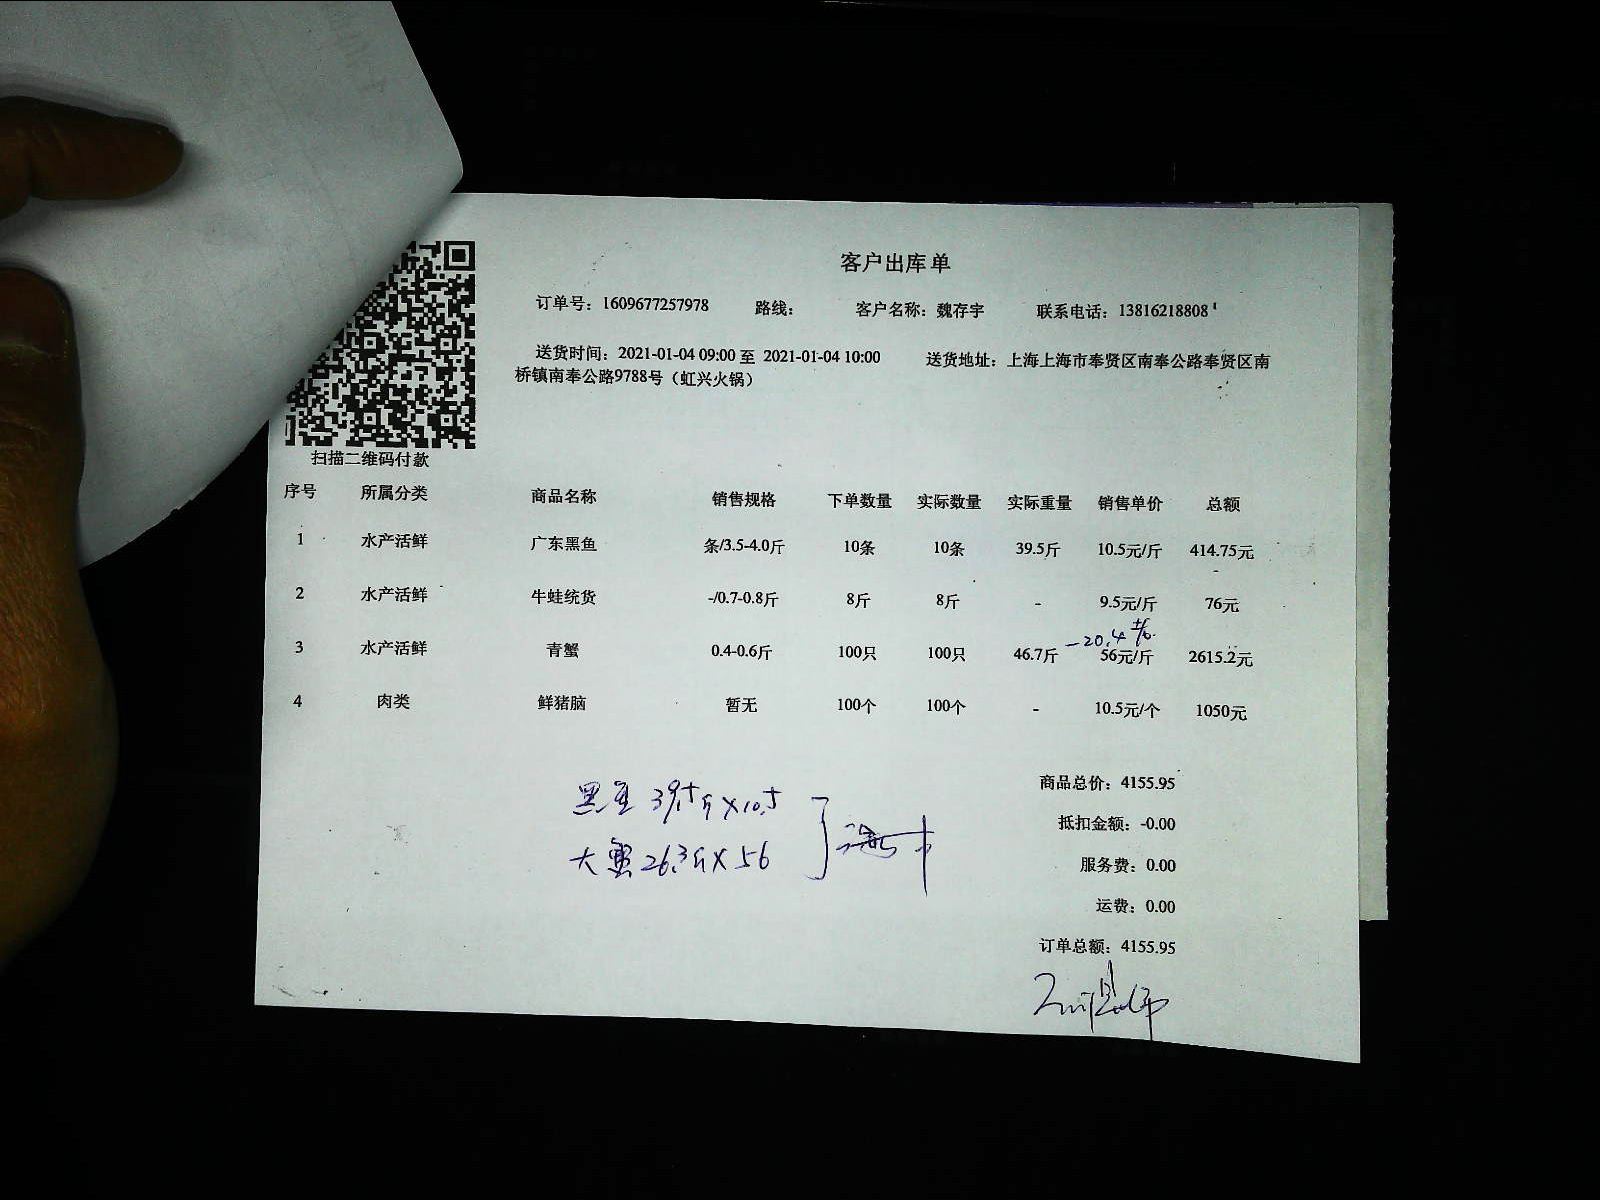 客户出库单
订单号：1609677257978 路线： 客户名称：魏存宇 联系电话：13816218808
送货时间：2021-01-04 09:00 至 2021-01-04 10:00 送货地址：上海上海市奉贤区南奉公路奉贤区南
桥镇南奉公路9788号（虹兴火锅）
扫描二维码付款
序号 所属分类 商品名称 销售规格 下单数量 实际数量 实际重量 销售单价 总额
1 水产活鲜 广东黑鱼 条/3.5-4.0斤 10条 10条 39.5斤 10.5元/斤 414.75元
2 水产活鲜 牛蛙统货 -/0.7-0.8斤 8斤 8斤 - 9.5元/斤 76元
-20.4
3 水产活鲜 青蟹 0.4-0.6斤 100只 100只 46.7斤 56元/斤 2615.2元
4 肉类 鲜猪脑 暂无 100个 100个 - 10.5元/个 1050元
商品总价：4155.95
黑鱼 39.5斤×10.5
抵扣金额：-0.00
大蟹 26.3斤×56
服务费：0.00
运费：0.00
订单总额：4155.95